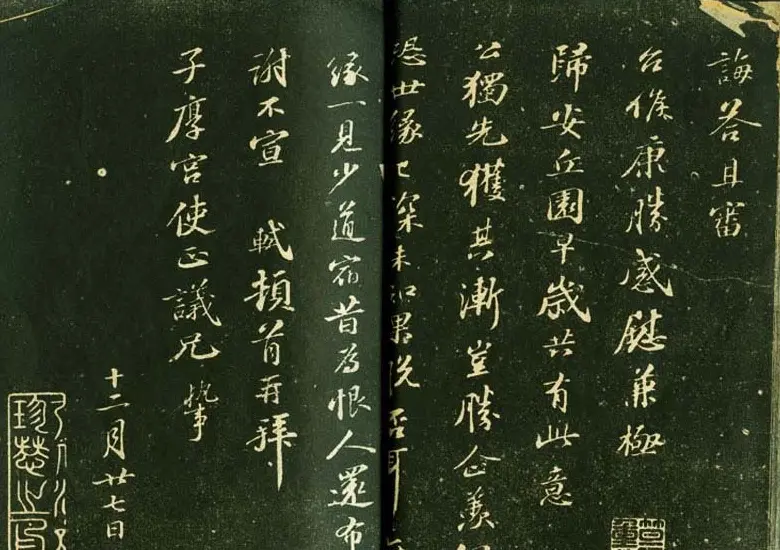 誨答且審
台候康勝感慰兼極
歸安丘園早歲共有此意
公獨先獲其漸豈勝企羨
恐世緣已深未知果脫否耳
緣一見少道宿昔為恨人還布
謝不宣 軾頓首再拜
子厚宮使正議兄執事
十二月廿七日